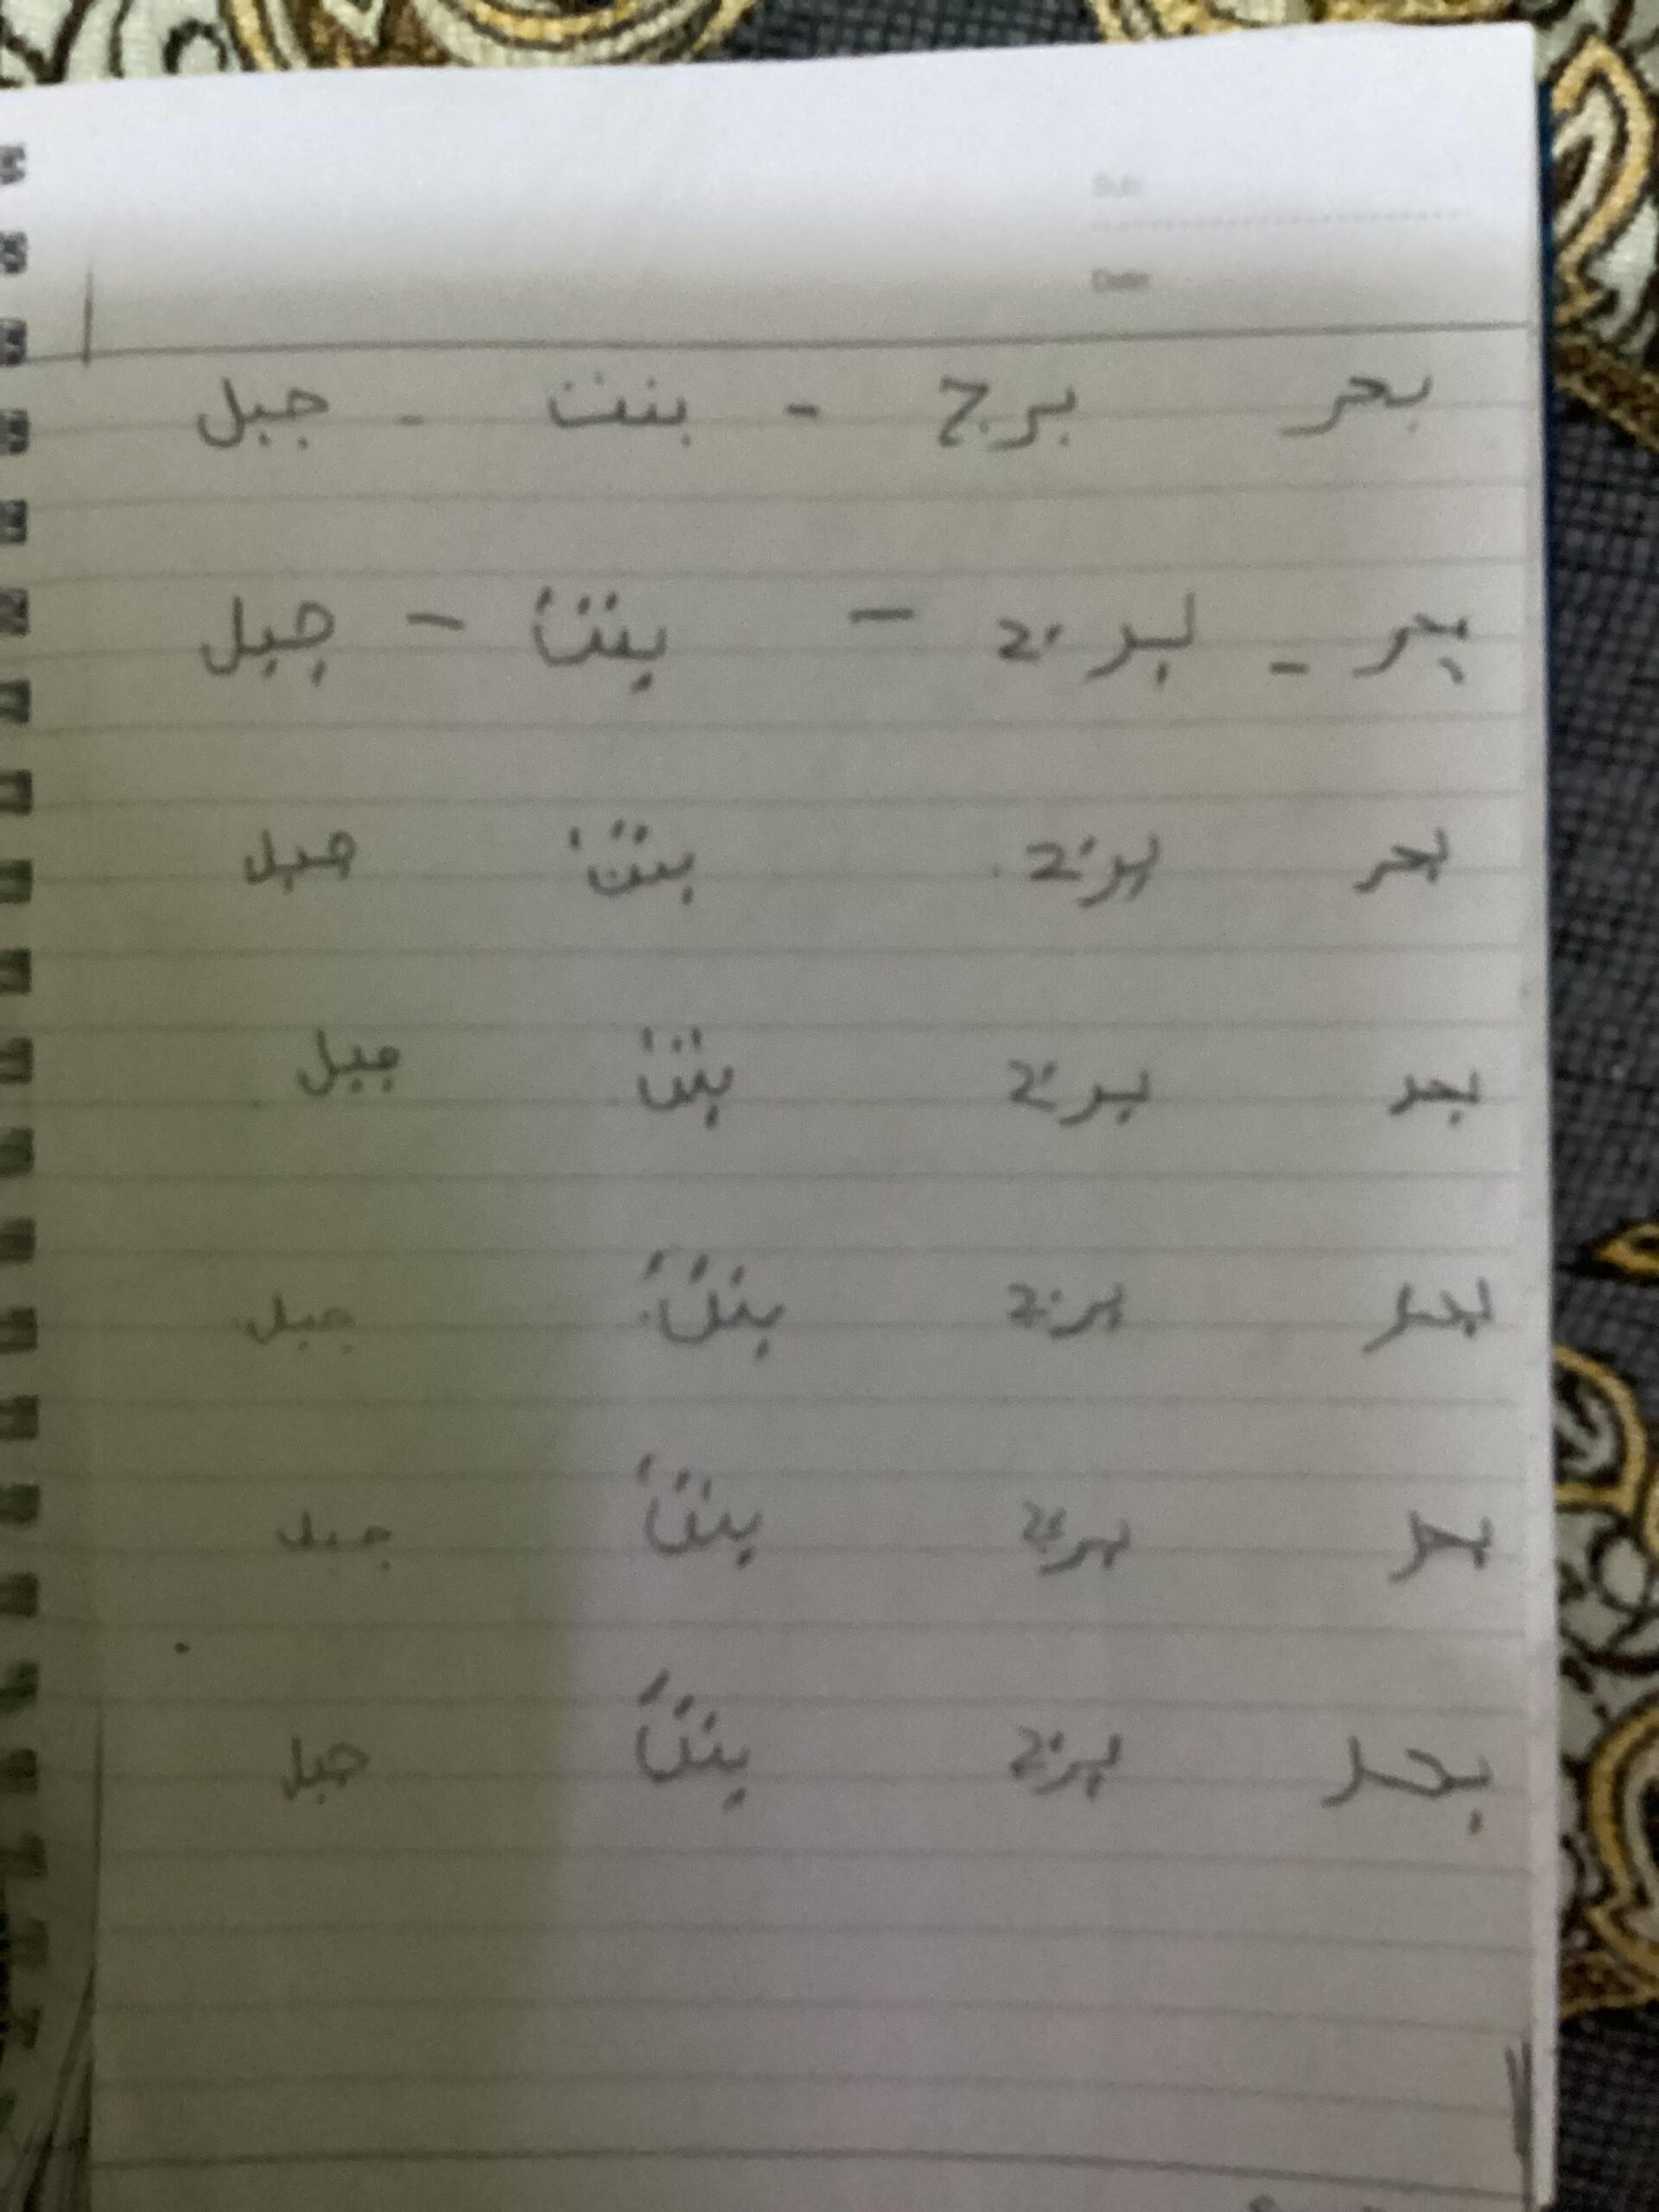 Sub:
Date:
بحر برج - بنت - جبل
بحر - برج - بنت - جبل
بحر برج بنت جبل
بحر برج بنت جبل
بحر برج بنت جبل
بحر برج بنت جبل
بحر برج بنت جبل